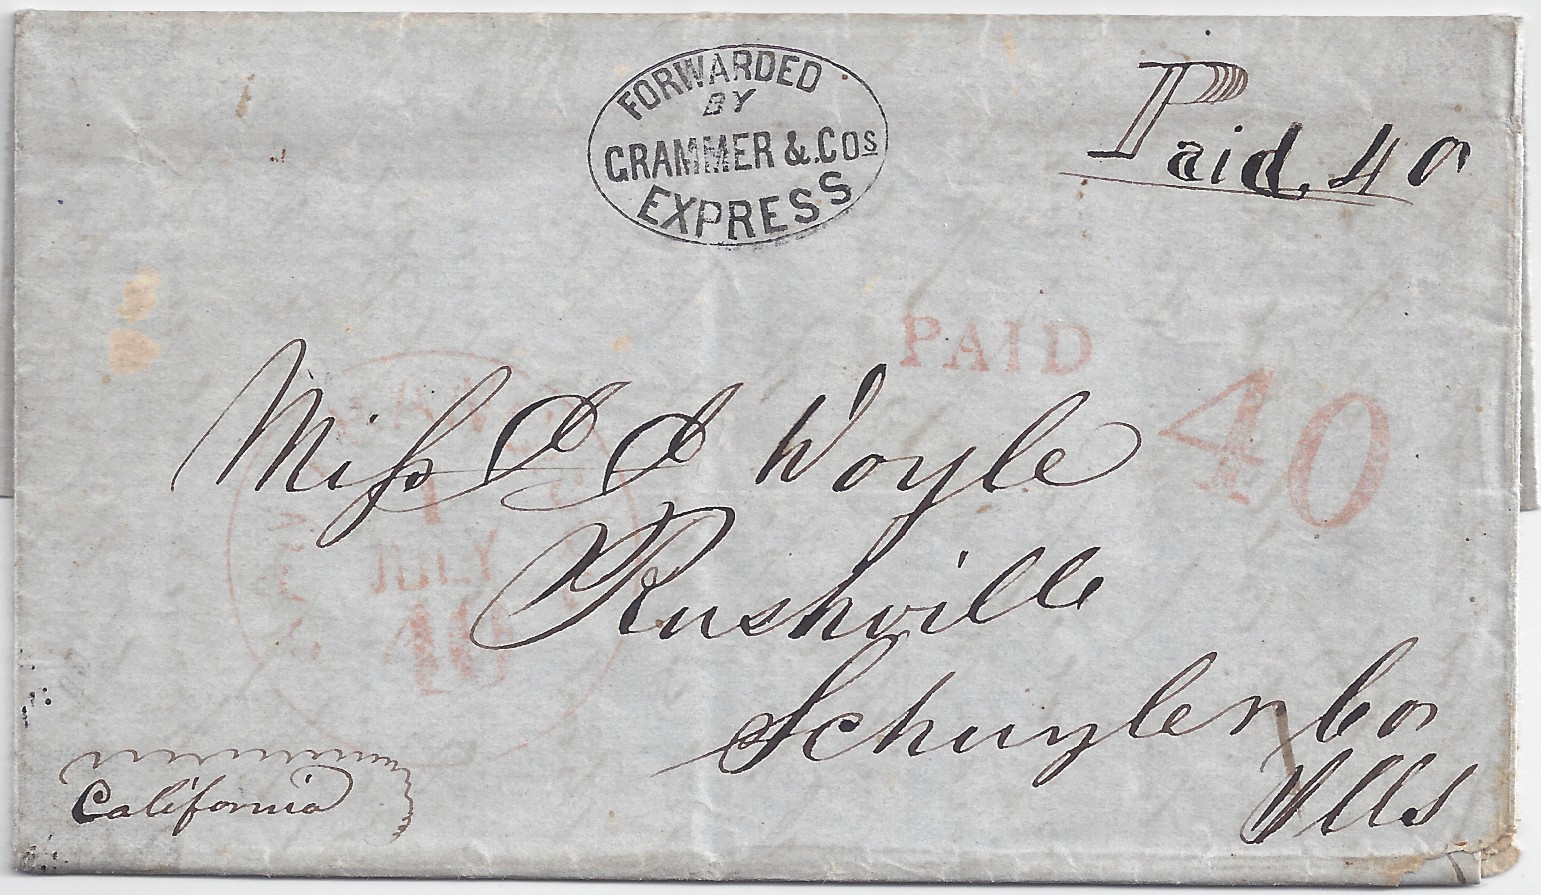 FORWARDED
BY
GRAMMER & COs
EXPRESS
Paid. 40
PAID
40
Miss D D Woyle
Rushville
Schuyler Co
Ills
1
JULY
California